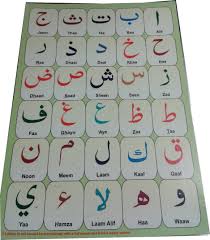 ا ب ت ث ج
Jeem Thaa Taa Baa Alif
ح خ د ذ ر
Raa Dhaal Daal Khaa Haa
ز س ش ص ض
Dhaad Saad Sheen Seen Zaa
ط ظ ع غ ف
Faa Ghayn Ayn Zaa Taa
ق ك ل م ن
Noon Meem Laam Kaaf Qaaf
و ه لا ء ي
Yaa Hamza Laam Alif Haa Waaw